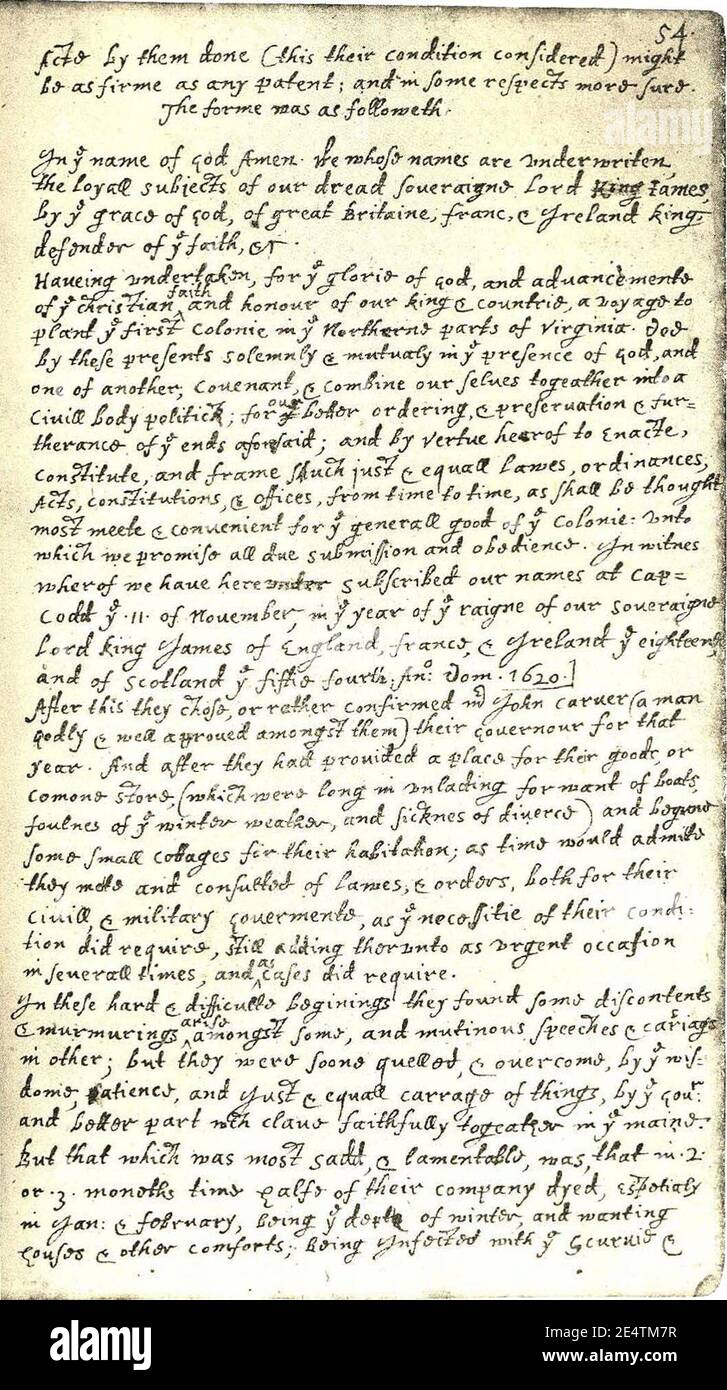 54.
Acts by them done (this their condition considered) might
be as firme as any patent; and in some respects more sure.
The forme was as followeth.
In yͤ name of god Amen. We whose names are underwriten,
the loyall subjects of our dread soveraigne Lord King James,
by yͤ grace of god, of great Britaine, franc, & Ireland king,
defender of yͤ faith, &c.
Haveing undertaken, for yͤ glorie of god, and advancemente
of yͤ christian faith and honour of our king & countrie, a voyage to
plant yͤ first colonie in yͤ Northerne parts of Virginia. Doe
by these presents solemnly & mutualy in yͤ presence of god, and
one of another, covenant, & combine our selves togeather into a
Civill body politick; for our better ordering, & preservation & fur=
therance of yͤ ends aforesaid; and by vertue hearof to Enacte,
constitute, and frame shuch just & equall lawes, ordinances,
Acts, constitutions, & offices, from time to time, as shall be thought
most meete & convenient for yͤ generall good of yͤ colonie: unto
which we promise all due submission and obedience. In witnes
wherof we have hereunder subscribed our names at Cap=
Codd yͤ .11. of November, in yͤ year of yͤ raigne of our soveraigne
Lord king James of England, france, & Ireland yͤ eighteenth
and of Scotland yͤ fiftie fourth. Anͦ: Dom. 1620.]
After this they chose, or rather confirmed mʳ John carver (a man
godly & well approved amongst them) their governour for that
year. And after they had provided a place for their goods, or
comone store (which were long in unlading for want of boats,
foulnes of yͤ winter weather, and sicknes of diverce) and begune
some small cottages for their habitation; as time would admitte
they mette and consulted of lawes, & orders, both for their
civill, & military govermente, as yͤ necessitie of their condi-
tion did require, still adding therunto as urgent occasion
in severall times, and as cases did require.
In these hard & difficulte beginings they found some discontents
& murmurings arise amongst some, and mutinous speeches & cariags
in other; but they were soone quelled, & overcome, by yͤ wis-
dome, patience, and just & equall carrage of things, by yͤ Govʳ:
and better part wch clave faithfully togeather in yͤ maine.
But that which was most sadd, & lamentable, was, that in .2.
or .3. moneths time halfe of their company dyed, espetialy
in Jan: & february, being yͤ depth of winter, and wanting
houses & other comforts; being Infected with yͤ Scurvie &
alamy
alamy
Image ID: 2E4TM7R
www.alamy.com